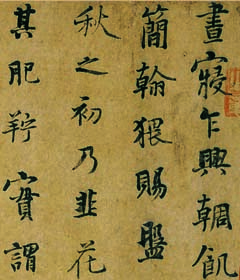 晝寢乍興輖飢
簡翰猥賜盤
秋之初乃韭花
其肥羜實謂